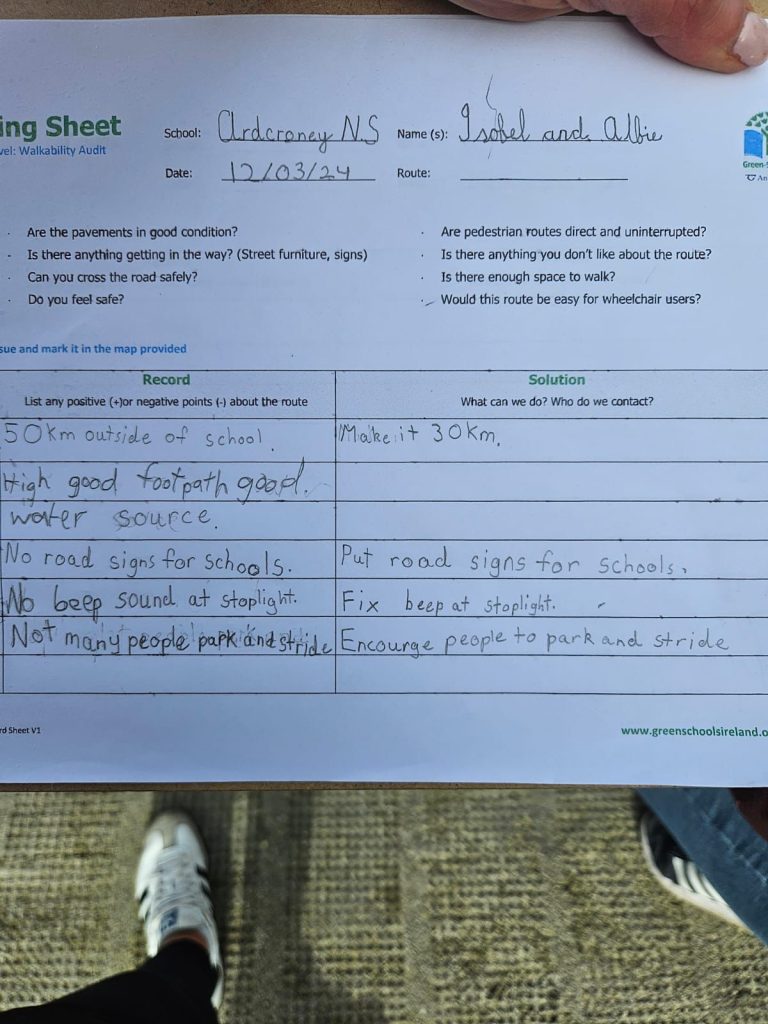 ing Sheet
vel: Walkability Audit
School: Ardcroney N.S
Name (s): Isobel and Albie
Date: 12/03/24
Route:
Green-S
An
· Are the pavements in good condition?
- Is there anything getting in the way? (Street furniture, signs)
· Can you cross the road safely?
· Do you feel safe?
· Are pedestrian routes direct and uninterrupted?
· Is there anything you don't like about the route?
· Is there enough space to walk?
· Would this route be easy for wheelchair users?
sue and mark it in the map provided
Record
List any positive (+)or negative points (-) about the route
Solution
What can we do? Who do we contact?
50km outside of school.
Make it 30km.
High good footpath good.
water source.
No road signs for schools.
Put road signs for schools.
No beep sound at stoplight.
Fix beep at stoplight.
Not many people park and stride
Encourge people to park and stride
rd Sheet V1
www.greenschoolsireland.o